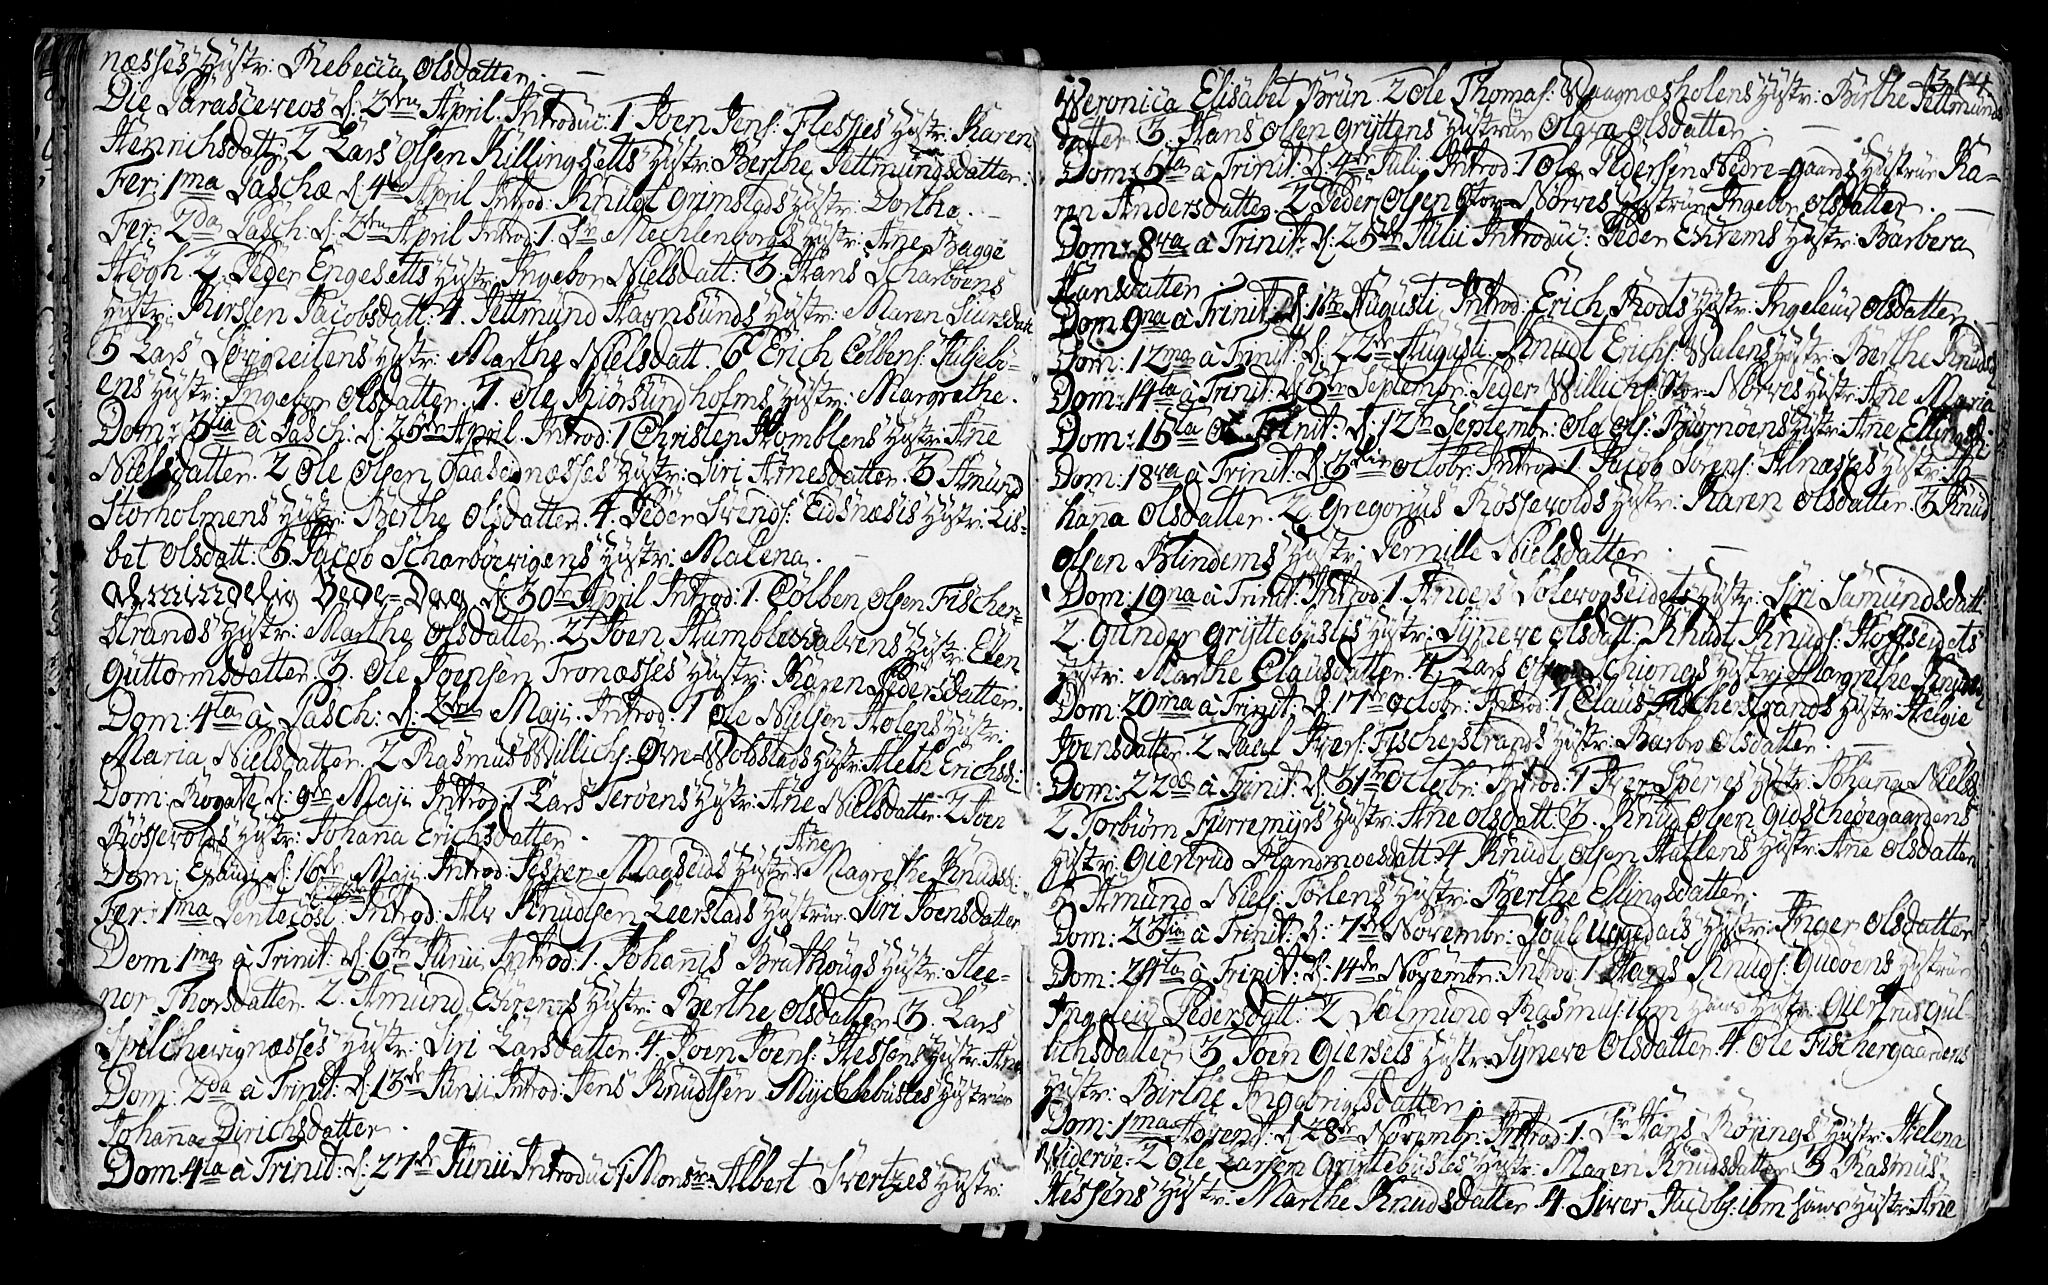 næsses Hystr: Rebecca Olsdatter. —
Die Parasceveos d: 2den April. Introduc: 1. Joen Jens: Flesses Hystr: Karen
Henrichsdatt: 2 Lars Olsen Killingsetts Hystr: Berthe Jettmundsdatter.
Fer: 1ma Paschæ d: 4de April Introd: Knudt Grimstads Hystr: Dorthe. —
Fer: 2da Pasch: d: April Introd: 1. Sr Mechlenborgs Hystr: Ane Bagge
Høgh 2. Peder Engesetts Hystr: Ingebor Nielsdatt: 3. Hans Scharbøens
Hystr: Kirsten Jacobsdatt: 4. Jettmund Hagnsunds Hystr: Maren Siursdatt
5 Lars Hystr: Marthe Nielsdatt. 6 Erich Colbens:
ens Hystr: Ingebor Olsdatter. 7. Ole Biørsundholms Hystr: Margrethe.
Dom: 3tia à Pasch: d: 25de April. Introd: 1 Christen Homblens Hystr: Ane
Nielsdatter. 2 Ole Olsen Hystr: Siri Arnesdatter. 3 Amund
Storholmens Hystr: Berthe Olsdatter. 4. Peder Svends: Eidsnæsis Hystr: Lis-
bet Olsdatt: 5. Jacob Scharbøevigens Hystr: Malena. —
Almindelig Bede-Dag d 30te April Introd: 1. Colben Olsen Fischer-
strands Hystr: Marthe Olsdatter. 2. Joen Hystr: Elen
Guttormsdatter. 3. Ole Joensen Tronæsses Hystr: Karen Pedersdatter.
Dom: 4ta à Pasch: d: 2den Maji. Introd: 1 Ole Nielsen Holens Hystr:
Maria Nielsdatter. 2 Rasmus Willichs: Øvre-Wobstads Hystr: Aleth Erichsd:
Dom: Rogate d: 9de Maji Introd: 1 Lars Terøens Hystr: Ane Nielsdatter. 2 Joen
Røssevolds Hystr: Johana Erichsdatter.
Dom: Exaudi d: 16de Maji. Introd: Jesper Magseids Hystr: Ane Magrethe Knudsd:
Fer: 1ma Pentecost: Introd: Knudtsen Leerstads Hystrue Siri Joensdatter
Dom 1ma à Trinit: d: 6te Junii Introd: 1. Johanis Brathougs Hystr: Elee-
nor Thorsdatter. 2. Amund Ehrems Hystr: Berthe Olsdatter 3. Lars
Spilchevignæsses Hystr: Siri Larsdatter. 4. Joen Joens: Hessens Hystr: Ane
Dom: 2da à Trinit: d: 13de Junii Introd: Jens Knudtsen Mychlebustes Hystrue
Johanna Dirichsdatter.
Dom: 4ta à Trinit: d: 27de Junii Introduc: 1 Monsr: Albert Svertzes Hystr:
Weronica Elisabet Brün. 2 Ole Thomas: Waagnæsholens Hystr: Birthe Jettmunds
datter. 3. Hans Olsen Gryttens Hystrue Olava Olsdatter. —
Dom: 5ta à Trinit: d: 4de Julii Introd: 1 Ole Pedersen Nedre-gaards Hystrue Ka-
ren Andersdatter. 2 Peder Olsen Stor-Nørves Hystrue Ingebor Olsdatter. —
Dom: 8va à Trinit: d: 25de Julii Introduc: Peder Ehrems Hystr: Barbera
Hansdatter.
Dom: 9na à Trinit: d: 1ste Augusti Introd: Erich Rods Hystr: Ingeleiv Olsdatter. —
Dom: 12ma à Trinit: d: 22de Augusti Knudt Erichs: Walens Hystr: Berthe Knudsd:
Dom: 14ta à Trinit: d: 5te Septembr: Peder Willichs: Stor-Nørves Hystr: Ane Maria
Dom: 15ta à Trinit: d: 12te Septembr: Ole Ols: Biørnøens Hystr: Ane Ellingsd:
Dom: 18va à Trinit: d: 3die Octobr: Introd: 1. Jacob Sørens: Alnæsses Hystr: Jo-
hanna Olsdatter. 2. Gregorius Røssevolds Hystr: Karen Olsdatter. 3 Knud
Olsen Blindems Hystr: Pernille Nielsdatter. —
Dom: 19na à Trinit: Introd: 1 Anders Solevogseidets Hystr: Siri Samundsdatt
2. Gunder Gryttebustis Hystr: Synneve Olsdatt: Knudt Knuds: Hoffseidets
Hystr: Marthe Clausdatter. 4. Lars Schiongs Hystr: Margrethe Knudsd:
Dom: 20ma à Trinit: d: 17de Octobr: Introd: 1 Claus Fischerstrands Hystr: Helgie
Joensdatter. 2 Paal Ivers: Fischerstrands Hystr: Barbro Olsdatter. —
Dom: 22dæ à Trinit: d: 31te Octobr: Introd: 1 Iver Speries Hystr: Johanna Nielsd:
2 Torbiørn Furremyrs Hystr: Ane Olsdatt: 3. Knud Olsen Giøschøegaardens
Hystr: Giertrud Ransmoesdatt: 4 Knudt Olsen Hattlens Hystr: Ane Olsdatter
5 Amund Niels: Tørlens Hystr: Berthe Ellingsdatter.
Dom: 23tia à Trinit: d: 7de Novembr: Poul Uggedals Hystr: Inger Olsdatter
Dom: 24ta à Trinit: d: 14de Novembr: Introd: 1 Hans Knuds: Gudøens Hystrue
Ingeleiv Pedersdatt: 2 Salmund Rasmus: ibm hans Hystr: Giertrud Gul-
lichsdatter 3 Joen Giersets Hystr: Synneve Olsdatter. 4. Ole Fischergaardens
Hystr: Birthe Ingebrigtsdatter.
Dom: 1ma Advent: d 28de Novembr: Introd: 1. Sr Hans Rønings Hystr: Helena
Widerøe: 2 Ole Larsen Gryttebustes Hystr: Maren Knudsdatter 3 Rasmus
Hessens Hystr: Marthe Knudsdatter. 4. Siver Jacobs: ibm hans Hystr: Ane